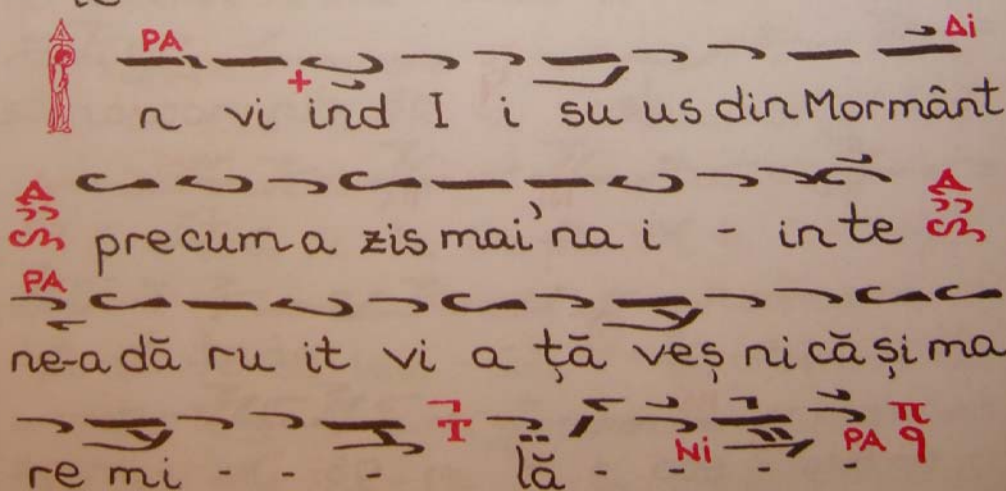 PA Δi
n vi ind I i su us din Mormânt
precum a zis mai'na i - in te
PA
ne-a dă ru it vi a ță veș ni că și ma
Ni PA π q
re mi - - - lă - - - - -